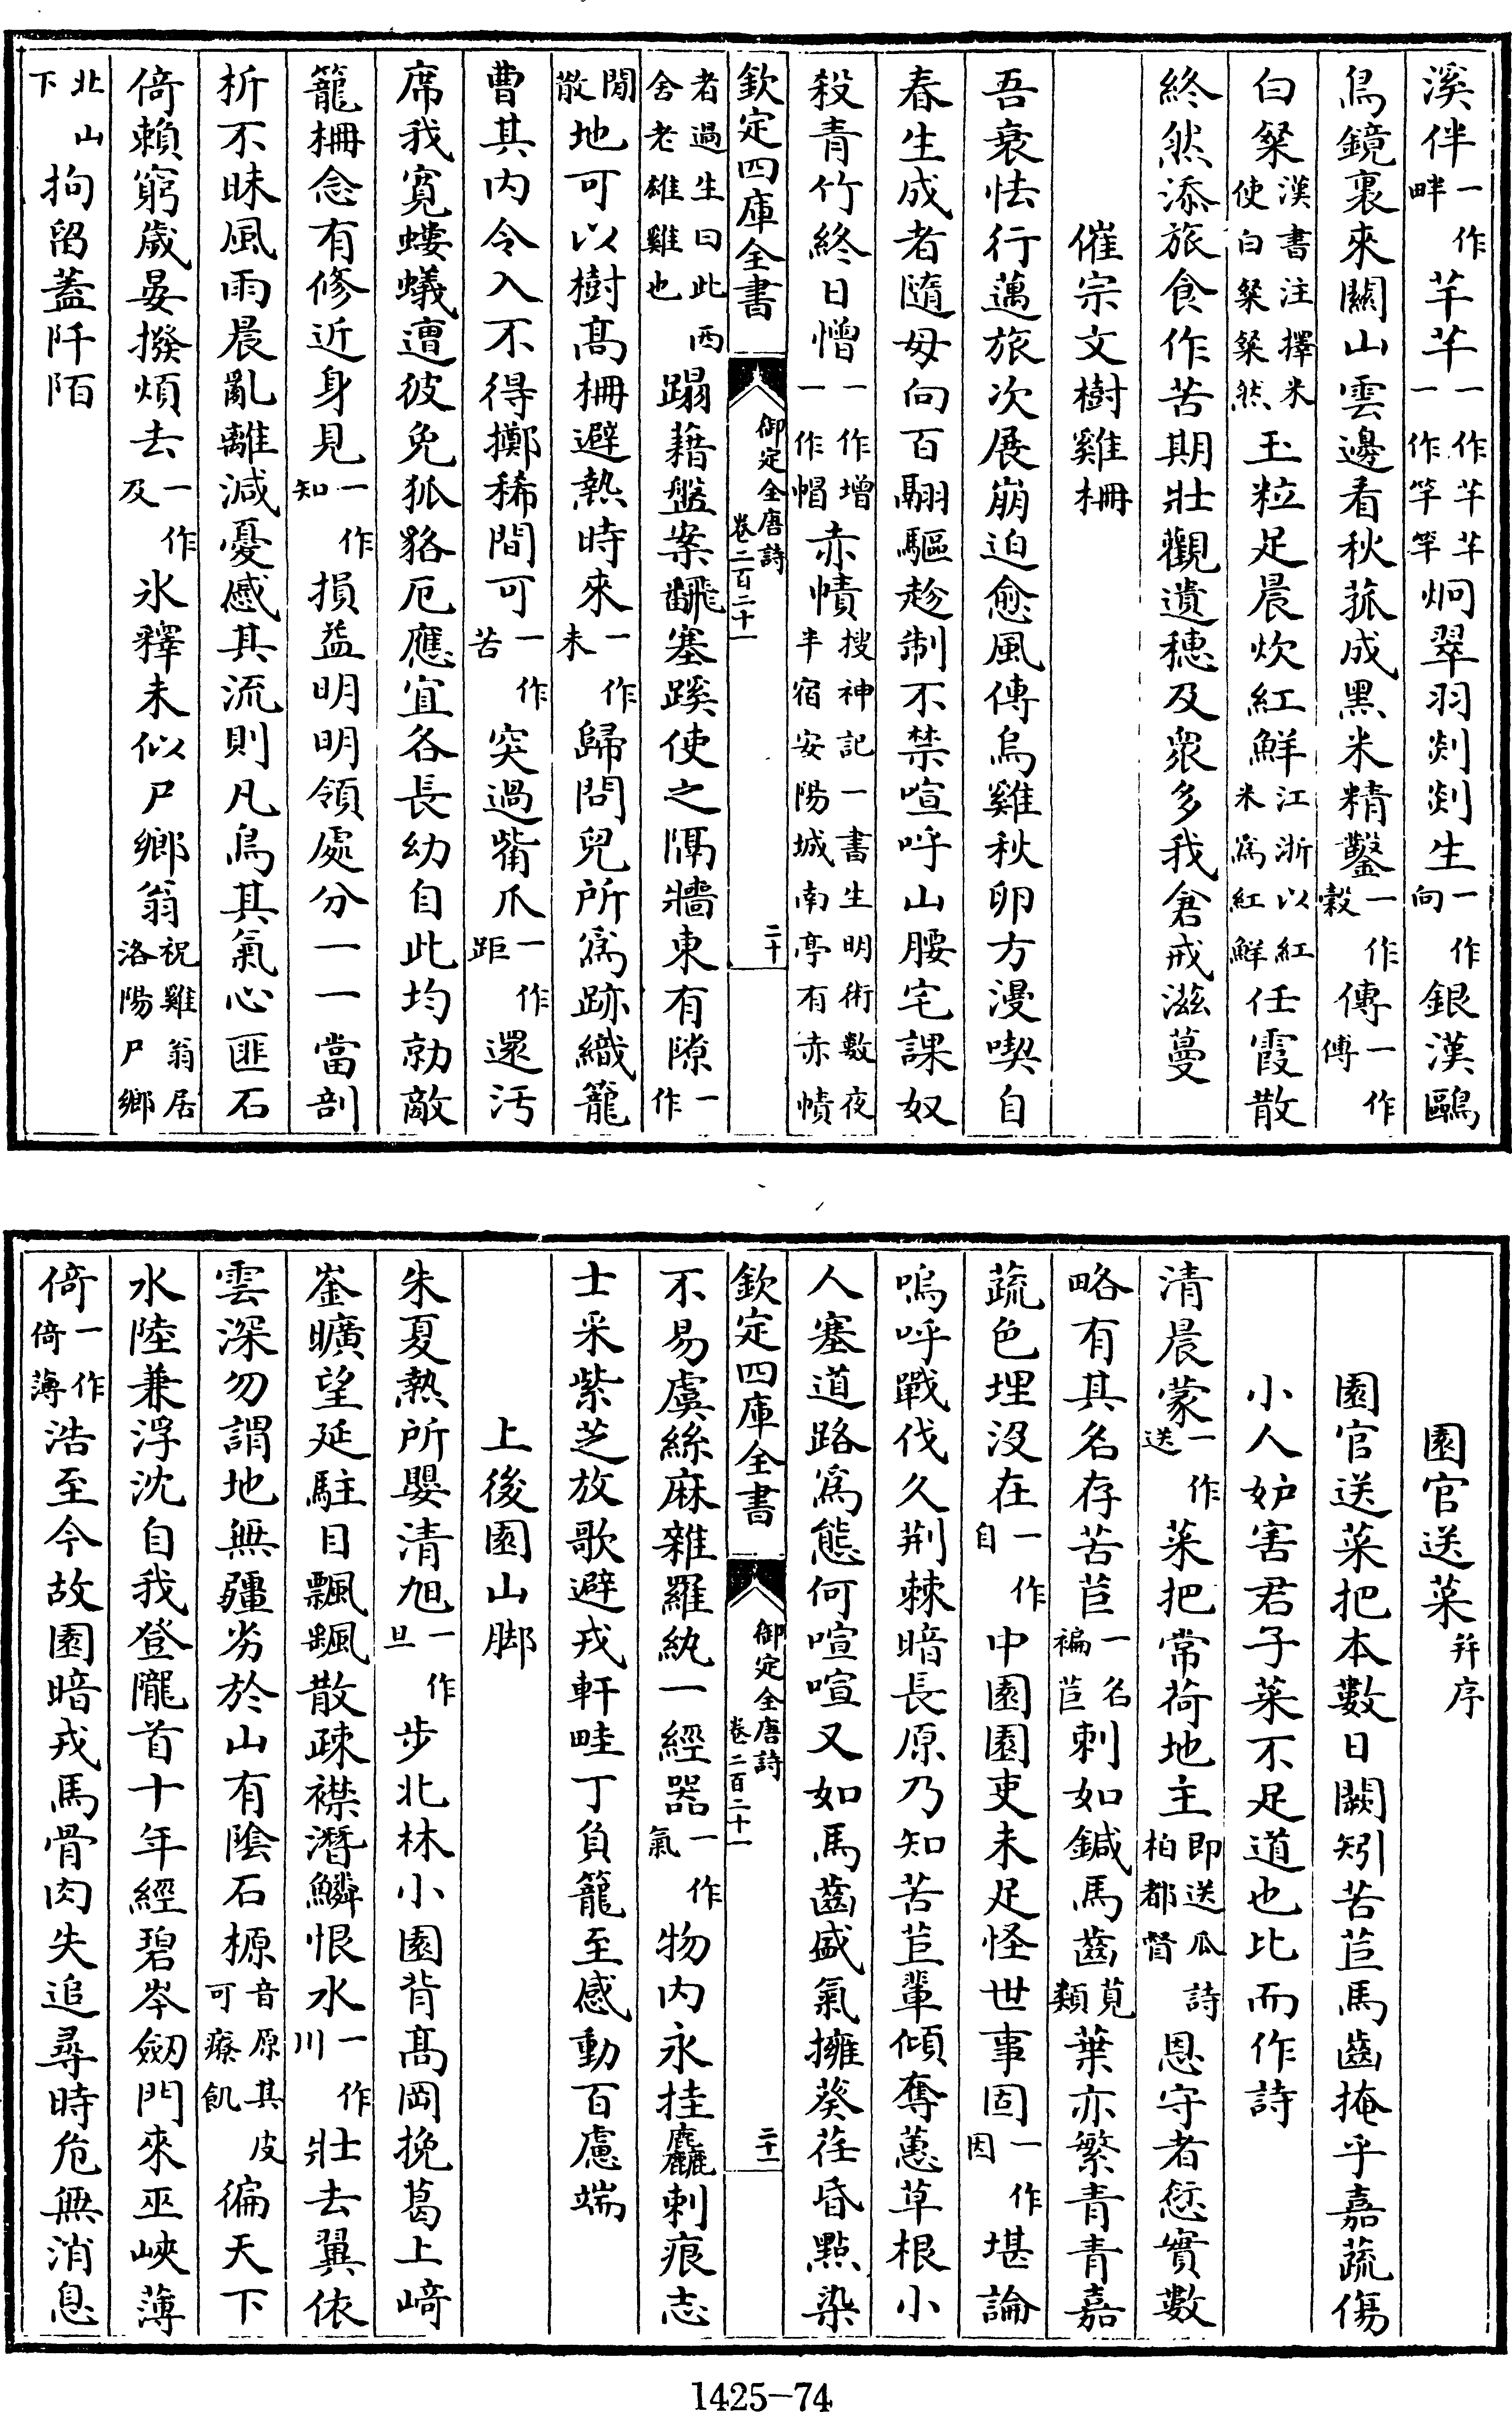 溪伴一作畔芊芊一作芊芊一作竿竿炯翠羽剡剡生一作向銀漢鷗
鳥鏡裏來關山雲邊看秋菰成黑米精鑿一作穀傳一作傅
白粲漢書注擇米使白粲粲然玉粒足晨炊紅鮮江浙以紅米爲紅鮮任霞散
終然添旅食作苦期壯觀遺穗及衆多我倉戒滋蔓
催宗文樹雞柵
吾衰怯行邁旅次展崩迫愈風傳烏雞秋卵方漫喫自
春生成者隨母向百翮驅趁制不禁喧呼山腰宅課奴
殺青竹終日憎一作增一作帽赤幘搜神記一書生明術數夜半宿安陽城南亭有赤幘
欽定四庫全書
御定全唐詩
卷二百二十一
二十
者過生曰此西舍老雄雞也蹋藉盤案飜塞蹊使之隔牆東有隙一作
閒散地可以樹高柵避熱時來一作未歸問兒所爲跡織籠
曹其内令入不得擲稀間可一作苦突過觜爪一作距還汚
席我寛螻蟻遭彼免狐貉厄應宜各長幼自此均勍敵
籠柵念有修近身見一作知損益明明領處分一一當剖
析不昧風雨晨亂離減憂慼其流則凡鳥其氣心匪石
倚賴窮歲晏撥煩去一作及氷釋未似尸鄉翁祝雞翁居洛陽尸鄉
北山下拘留蓋阡陌
園官送菜并序
園官送菜把本數日闕矧苦苣馬齒掩乎嘉蔬傷
小人妒害君子菜不足道也比而作詩
清晨蒙一作送菜把常荷地主即送瓜詩柏都督恩守者愆實數
略有其名存苦苣一名褊苣刺如鍼馬齒莧類葉亦繁青青嘉
蔬色埋没在一作自中園園吏未足怪世事固一作因堪論
嗚呼戰伐久荆棘暗長原乃知苦苣輩傾奪蕙草根小
人塞道路爲態何喧喧又如馬齒盛氣擁葵荏昏點染
欽定四庫全書
御定全唐詩
卷二百二十一
二十一
不易虞絲麻雜羅紈一經器一作氣物内永挂麤刺痕志
士采紫芝放歌避戎軒畦丁負籠至感動百慮端
上後園山脚
朱夏熱所嬰清旭一作旦步北林小園背高岡挽葛上崎
崟曠望延駐目飄颻散疎襟潛鱗恨水一作川壯去翼依
雲深勿謂地無疆劣於山有陰石榞音原其皮可療飢徧天下
水陸兼浮沈自我登隴首十年經碧岑劔門來巫峽薄
倚一作倚薄浩至今故園暗戎馬骨肉失追尋時危無消息
1425-74